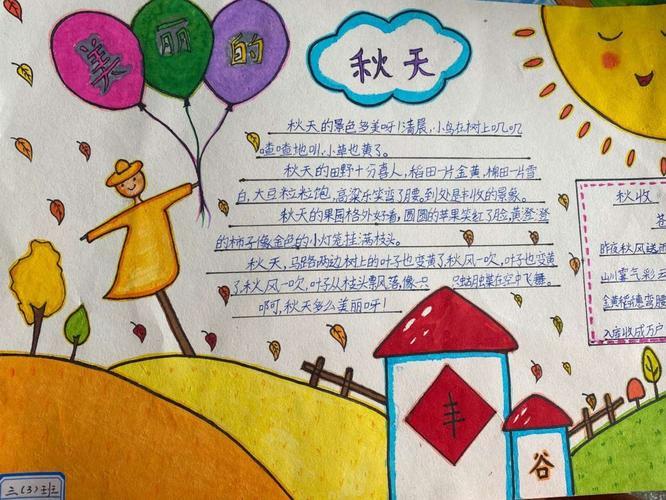 美丽的
秋天
秋天的景色多美呀!清晨,小鸟在树上叽叽
喳喳地叫,小草也黄了。
秋天的田野十分喜人,稻田一片金黄,棉田一片雪
白,大豆粒粒饱,高粱乐笑弯了腰,到处是丰收的景象。
秋天的果园格外好看,圆圆的苹果笑红了脸,黄澄澄
的柿子像金色的小灯笼挂满枝头。
秋天,马路两边树上的叶子也变黄了,秋风一吹,叶子也变黄
了,秋风一吹,叶子从枝头飘风落,像一只 只蝴蝶在空中飞舞。
啊呵,秋天多么美丽呀!
秋收
昨夜秋风送
山川雾气彩云
金黄稻穗弯腰
入房收成万户
丰
谷
三(3)班